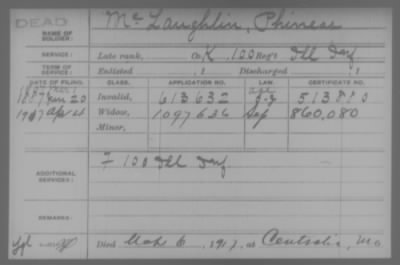 DEAD
NAME OF SOLDIER: McLaughlin, Phineas
SERVICE: Late rank, Co. K, 100 Reg't Ill Inf
TERM OF SERVICE: Enlisted , 1 Discharged , 1
DATE OF FILING. CLASS. APPLICATION NO. LAW. CERTIFICATE NO.
1887 Jan 20 Invalid, 613632 513880
1917 Apr 26 Widow, 1097636 860,080
Minor,
ADDITIONAL SERVICES: F 100 Ill Inf
REMARKS:
Died Mch 6, 1917, at Centralia, Mo